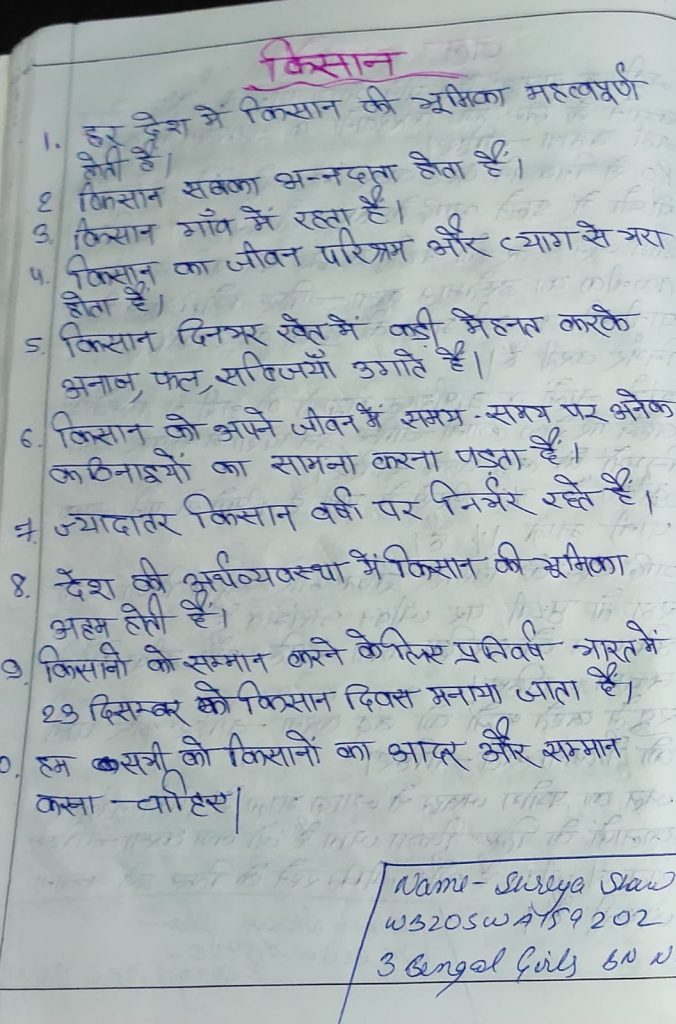 किसान
1. हर देश में किसान की भूमिका महत्वपूर्ण
होती है।
2 किसान सबका अन्नदाता होता हैं।
3. किसान गाँव में रहता है।
4. किसान का जीवन परिश्रम और त्याग से भरा
होता है।
5. किसान दिनभर खेत में कड़ी मेहनत करके
अनाज, फल, सब्जियाँ उगाते है।
6. किसान को अपने जीवन में समय-समय पर अनेक
कठिनाइयों का सामना करना पड़ता हैं।
7. ज्यादातर किसान वर्षा पर निर्भर रहते हैं।
8. देश की अर्थव्यवस्था में किसान की भूमिका
अहम होती हैं।
9. किसानो को सम्मान करने के लिए प्रतिवर्ष भारत में
23 दिसम्बर को किसान दिवस मनाया जाता है।
0. हम सभी को किसानों का आदर और सम्मान
करना चाहिए।
Name - Sureya Shaw
WB20SWA159202
3 Bengal Girls BN N